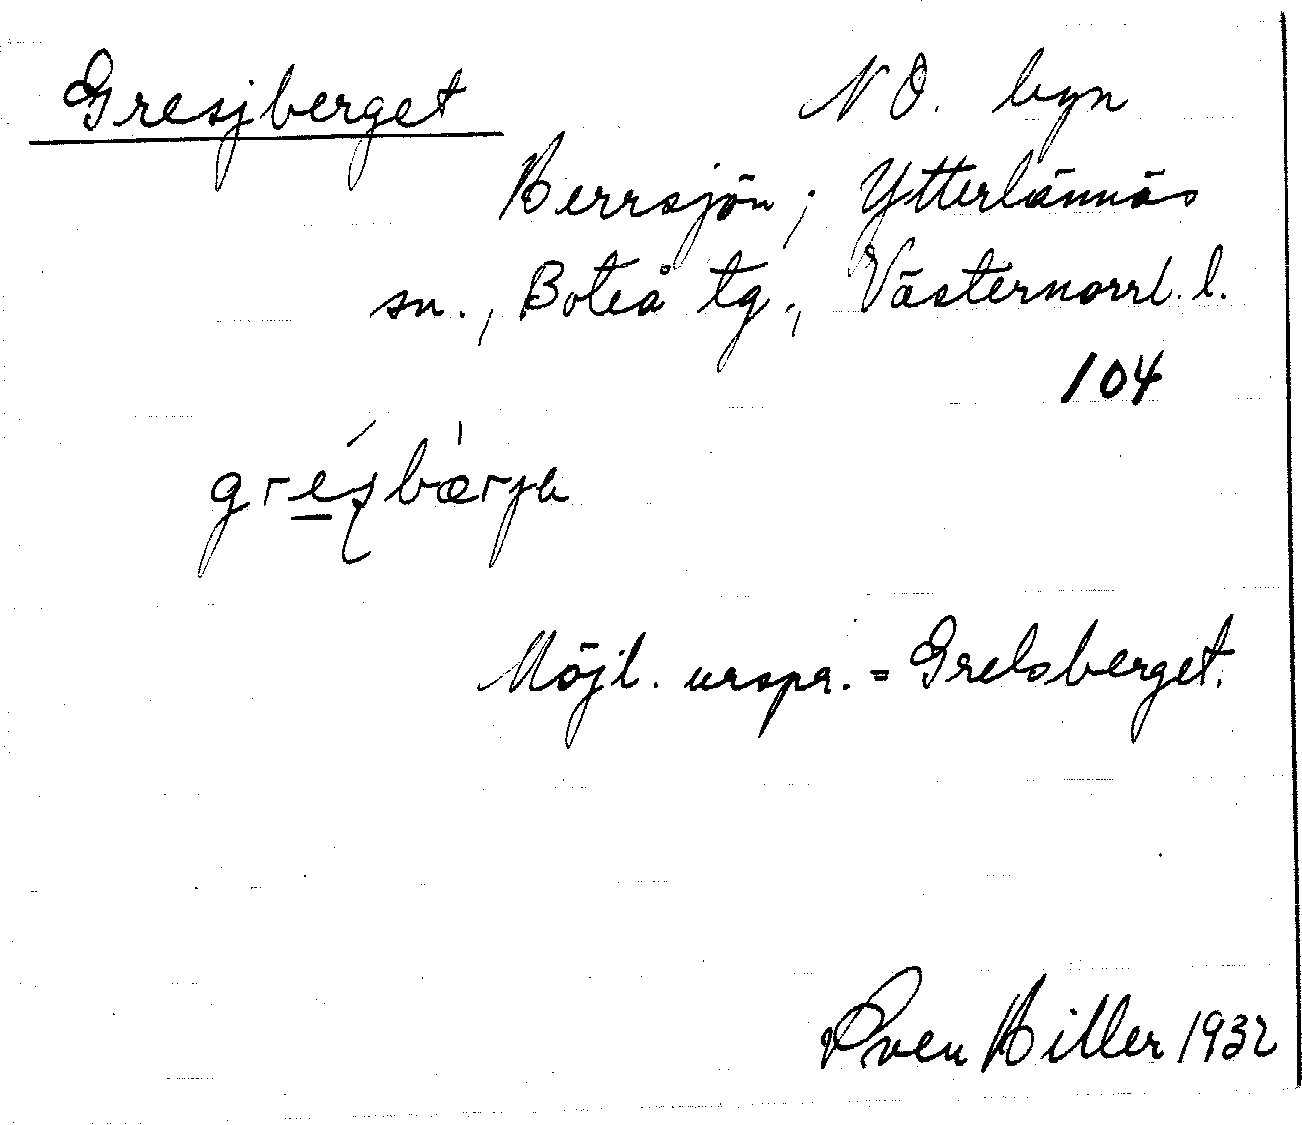 Gresjberget N O. byn
Herrsjön; Ytterlännäs
sn., Boteå tg., Västernorrl. l.
104
Möjl. urspr. = Grelsberget.
Sven Hiller 1932